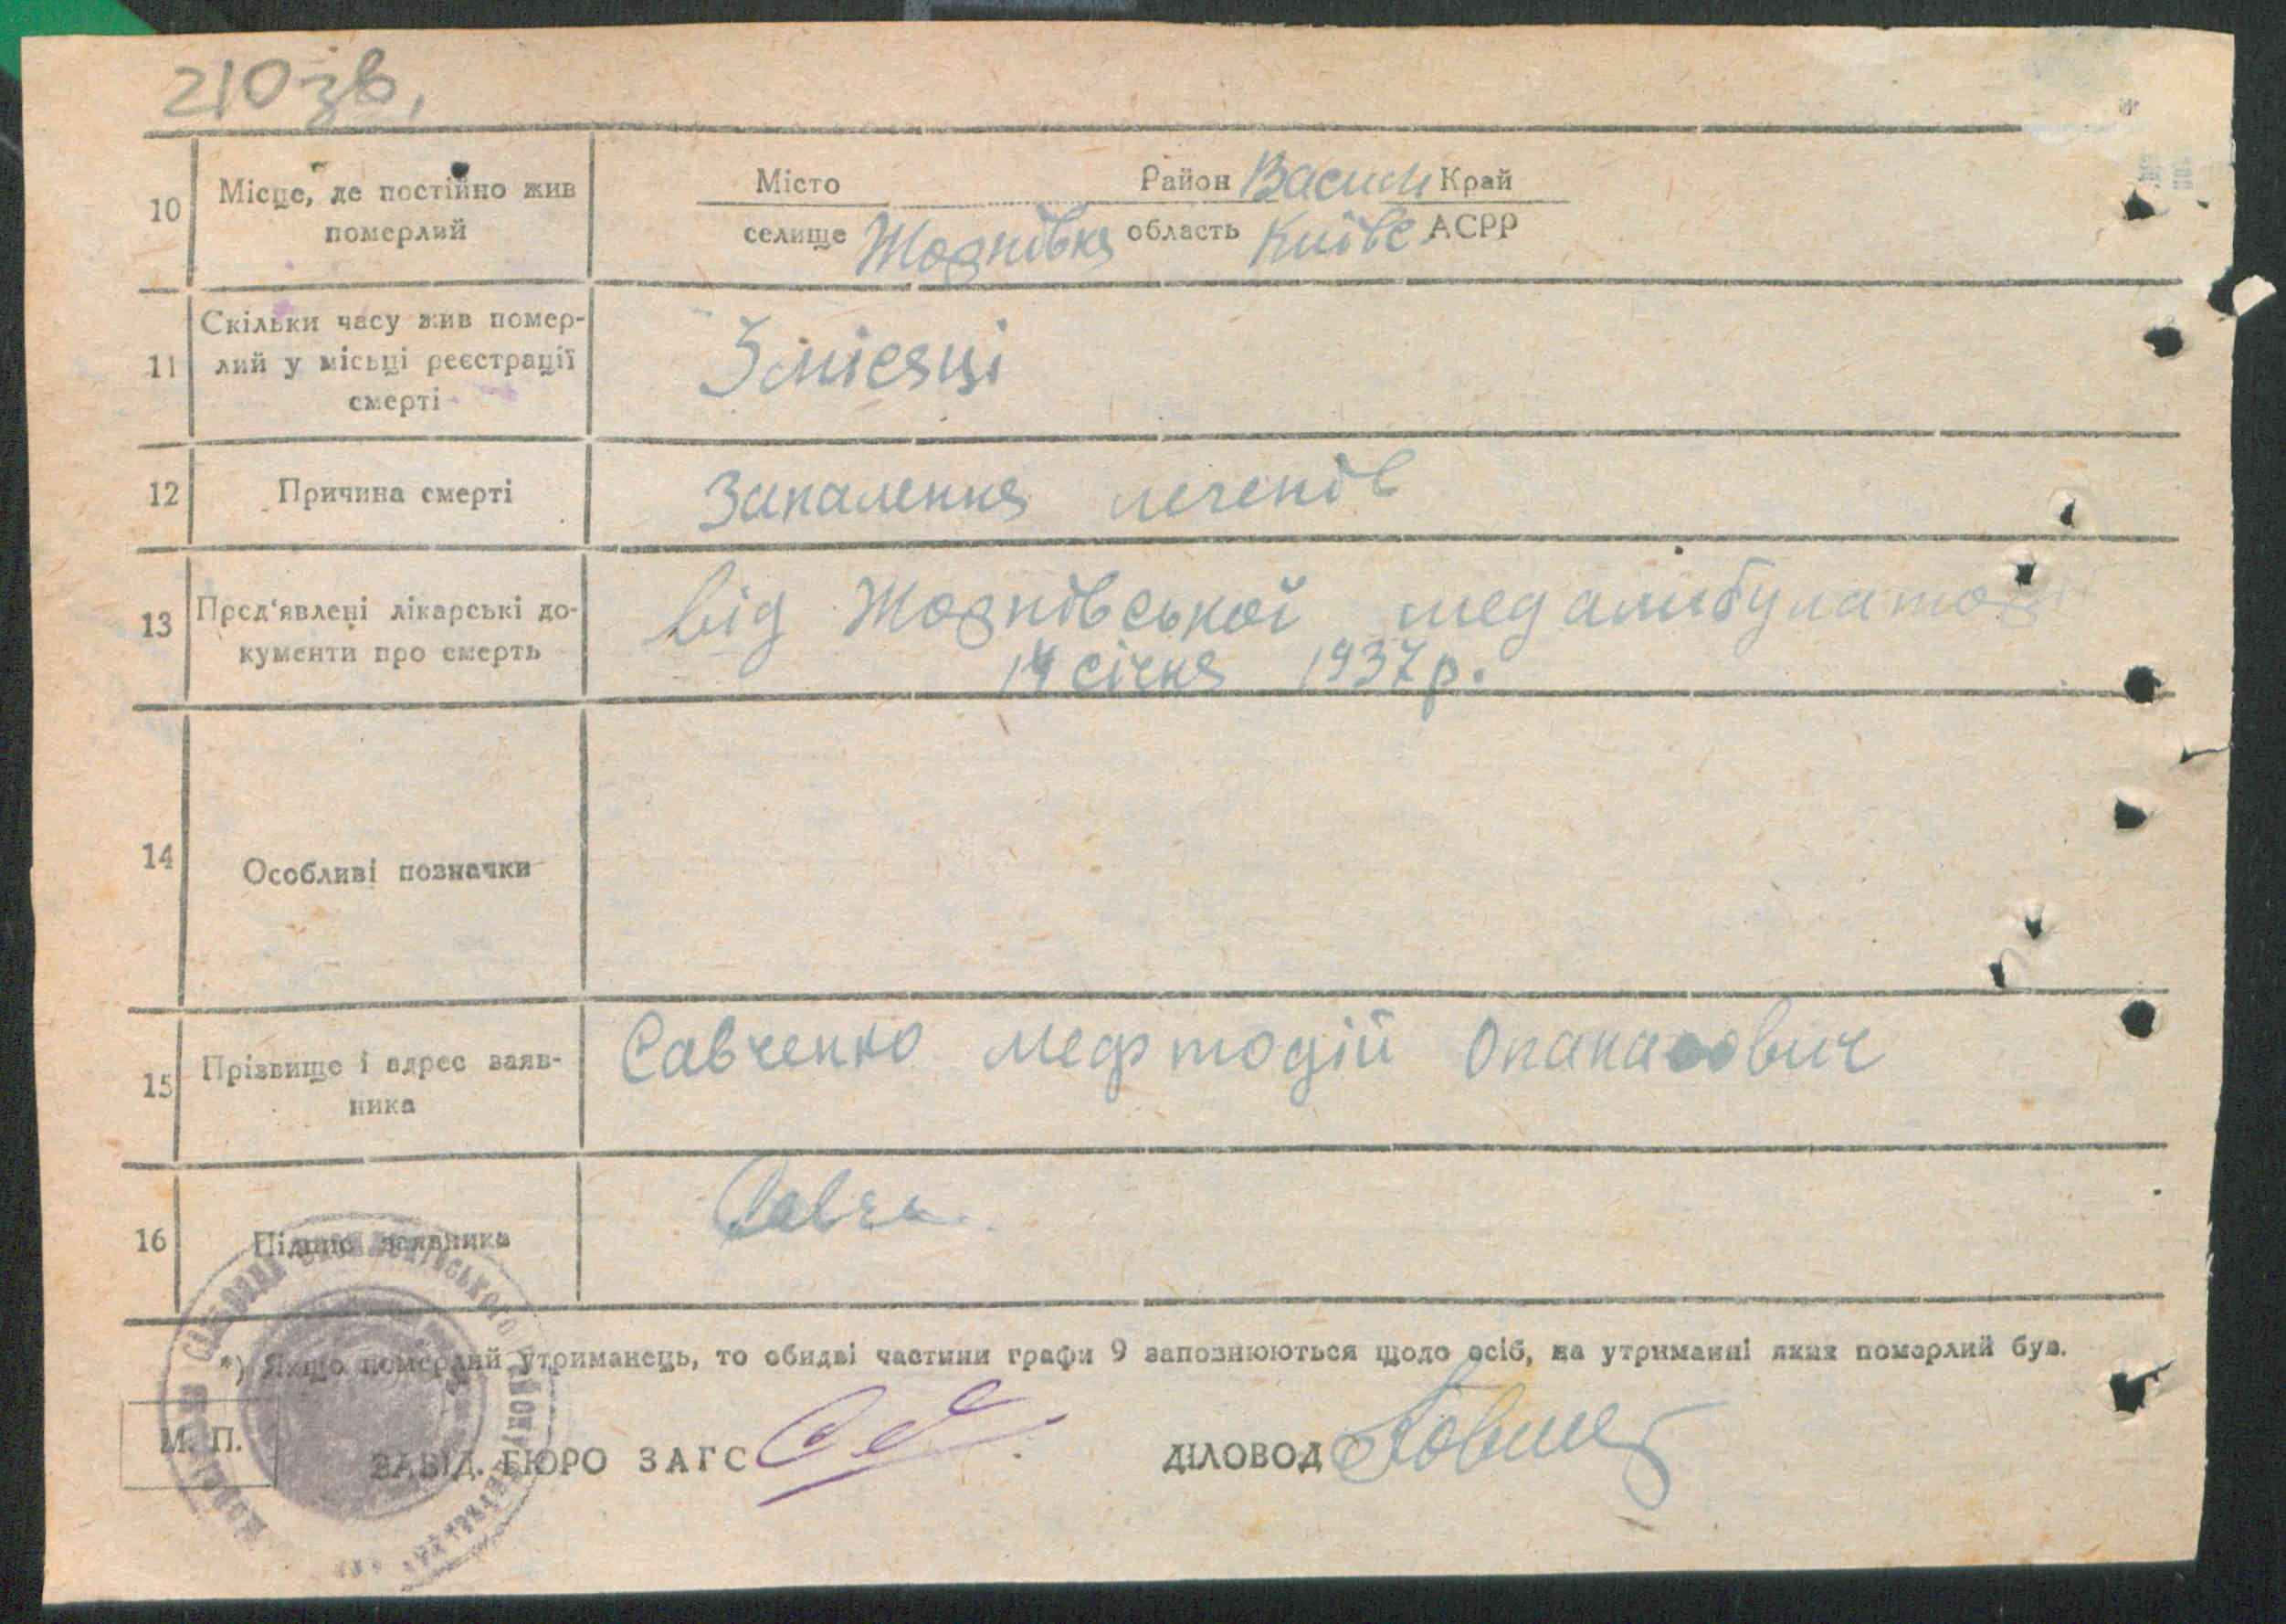 210 зв.
10 Місце, де постійно жив померлий
Місто Район Васильк Край
селище Мотовилівка область Київс АСРР
11 Скільки часу жив помер-
лий у місьці реєстрації
смерті
3 місяці
12 Причина смерті Запалення легенів
13 Пред'явлені лікарські до-
кументи про смерть
від медамбулато
14 січня 1937 р.
14 Особливі позначки
15 Прізвище і адрес заяв-
ника
Савченко Мефтодій Опанасович
16 Підпис заявника Савче
*) Якщо померлий утриманець, то обидві частини графи 9 заповнюються щодо осіб, на утриманні яких померлий був.
М. П.
ЗАВІД. БЮРО ЗАГС ДІЛОВОД